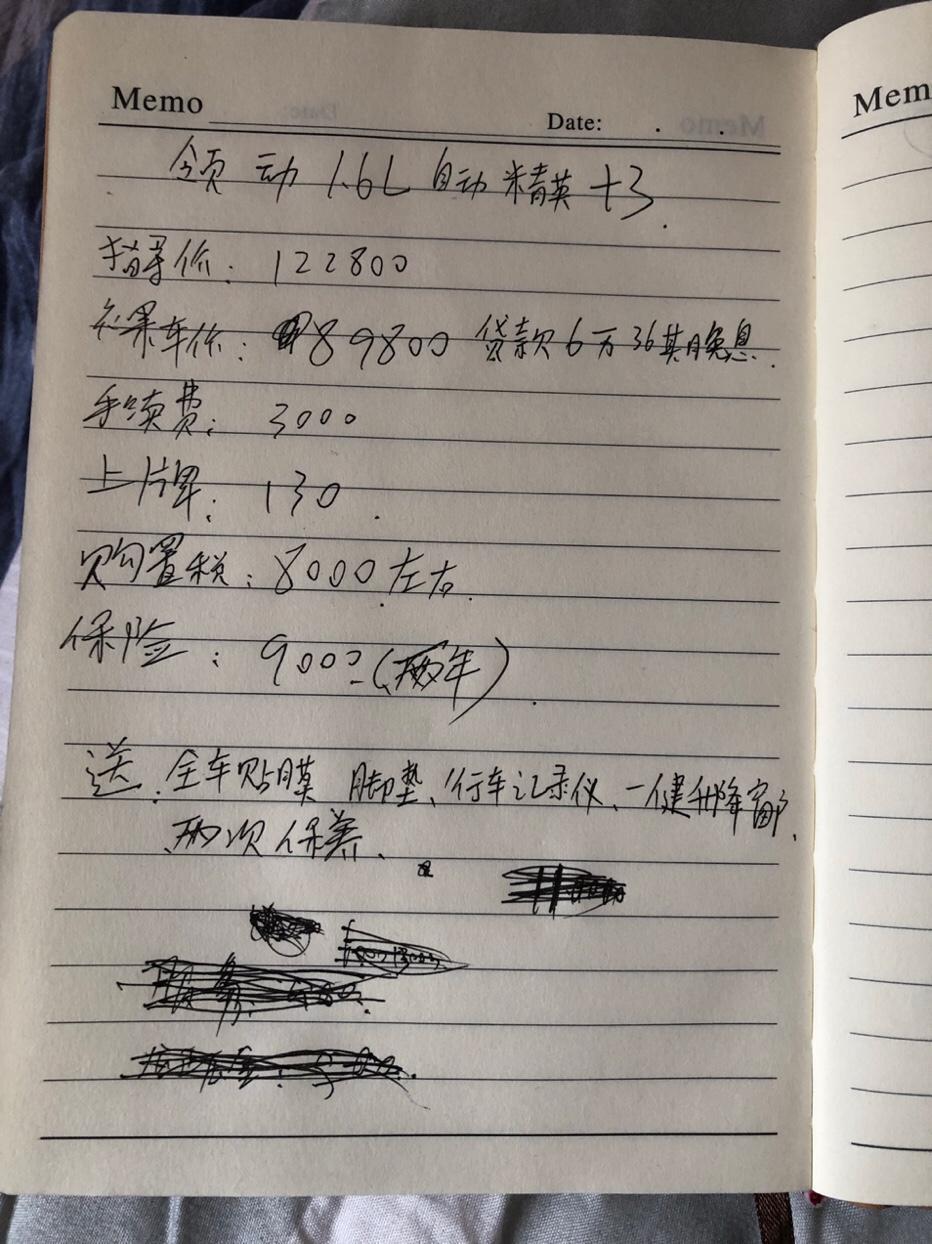 Memo Date: . .
领动 1.6L 自动精英 +3.
指导价: 122800
裸车价: 89800 贷款6万36期免息.
手续费: 3000
上牌: 130.
购置税: 8000左右.
保险: 9000(两年).
送. 全车贴膜 脚垫、行车记录仪、一健升降窗户、
两次保养.
Mem